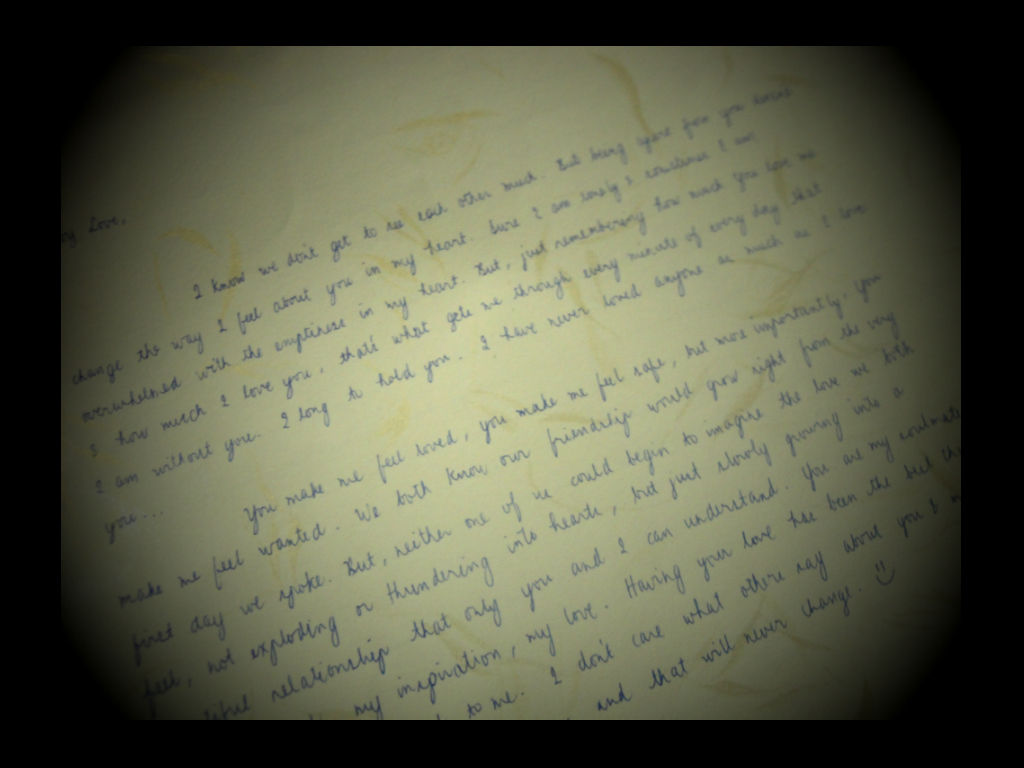 Love,
I know we don't get to see each other much. But being apart from you doesn't
change the way I feel about you in my heart. Sure I am lonely & sometimes I am
overwhelmed with the emptiness in my heart. But, just remembering how much you love me
& how much I love you, that's what gets me through every minute of every day that
I am without you. I long to hold you. I have never loved anyone as much as I love
you...
You make me feel loved, you make me feel safe, but more importantly, you
make me feel wanted. We both know our friendship would grow right from the very
first day we spoke. But, neither one of us could begin to imagine the love we both
feel, not exploding or thundering into hearts, but just slowly growing into a
relationship that only you and I can understand. You are my soulmate
my inspiration, my love. Having your love has been the best
to me. I don't care what others say about you &
and that will never change. :)